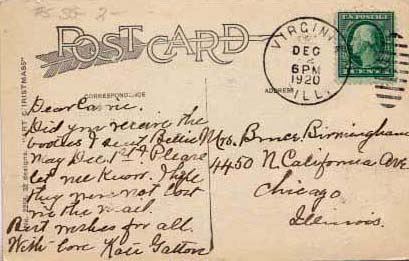 75 50 - 2
POST CARD
CORRESPONDENCE
ADDRESS
VIRGINIA
DEC
6 PM
1920
ILL.
U.S. POSTAGE
1 CENT 1
32 designs. "ART CHRISTMASS"
Dear Carrie.
Did you receive the
booties I sent Bettie
May Dec. 1st Please
let me know. I hope
they were not lost
in the mail.
Best wishes for all.
With love Kate Gatton
Mrs. Bruce Birmingham
4450 N. California Ave
Chicago
Illinois.